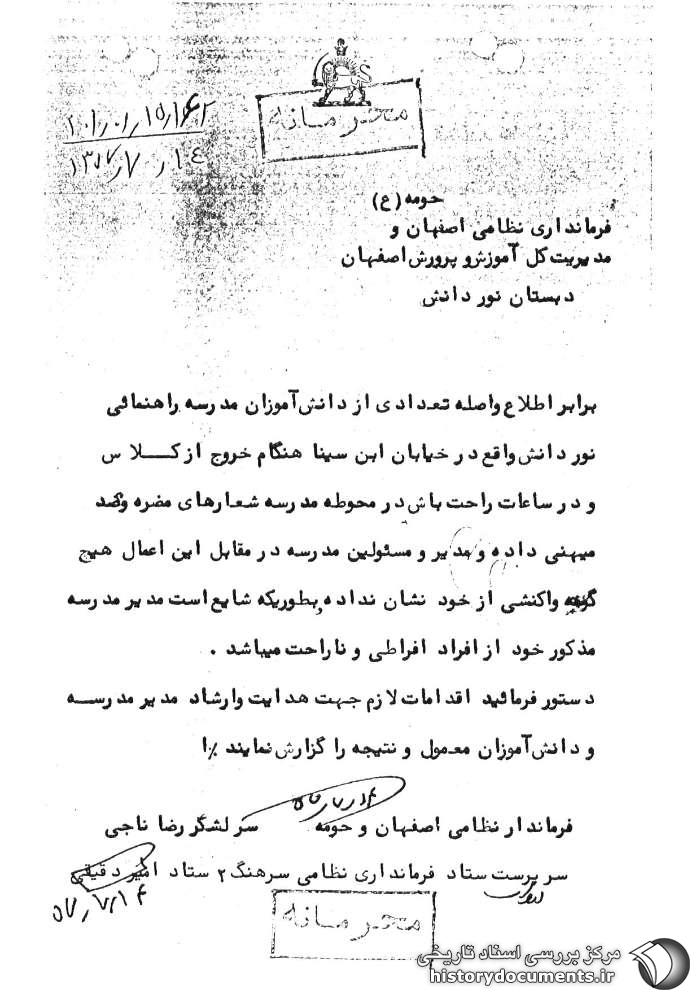 محرمانه
۲۰۱٫۰۱٫۱۵٫۱۶۲
۱۳۵۷٫۷٫۱۴
حومه (ع)
فرمانداری نظامی اصفهان و
مدیریت کل آموزش و پرورش اصفهان
دبستان نور دانش
برابر اطلاع واصله تعدادی از دانش آموزان مدرسه راهنمائی
نور دانش واقع در خیابان ابن سینا هنگام خروج از کلاس
و در ساعات راحت باش در محوطه مدرسه شعارهای مضره و ضد
میهنی داده و مدیر و مسئولین مدرسه در مقابل این اعمال هیچ
گونه واکنشی از خود نشان نداده و بطوریکه شایع است مدیر مدرسه
مذکور خود از افراد افراطی و ناراحت میباشد .
دستور فرمائید اقدامات لازم جهت هدایت و ارشاد مدیر مدرسه
و دانش آموزان معمول و نتیجه را گزارش نمایند
۵۷٫۷٫۱۴
فرماندار نظامی اصفهان و حومه سرلشگر رضا ناجی
سرپرست ستاد فرمانداری نظامی سرهنگ ۲ ستاد امیر دقیقی
۵۷٫۷٫۱۴
محرمانه
مرکز بررسی اسناد تاریخی
historydocuments.ir